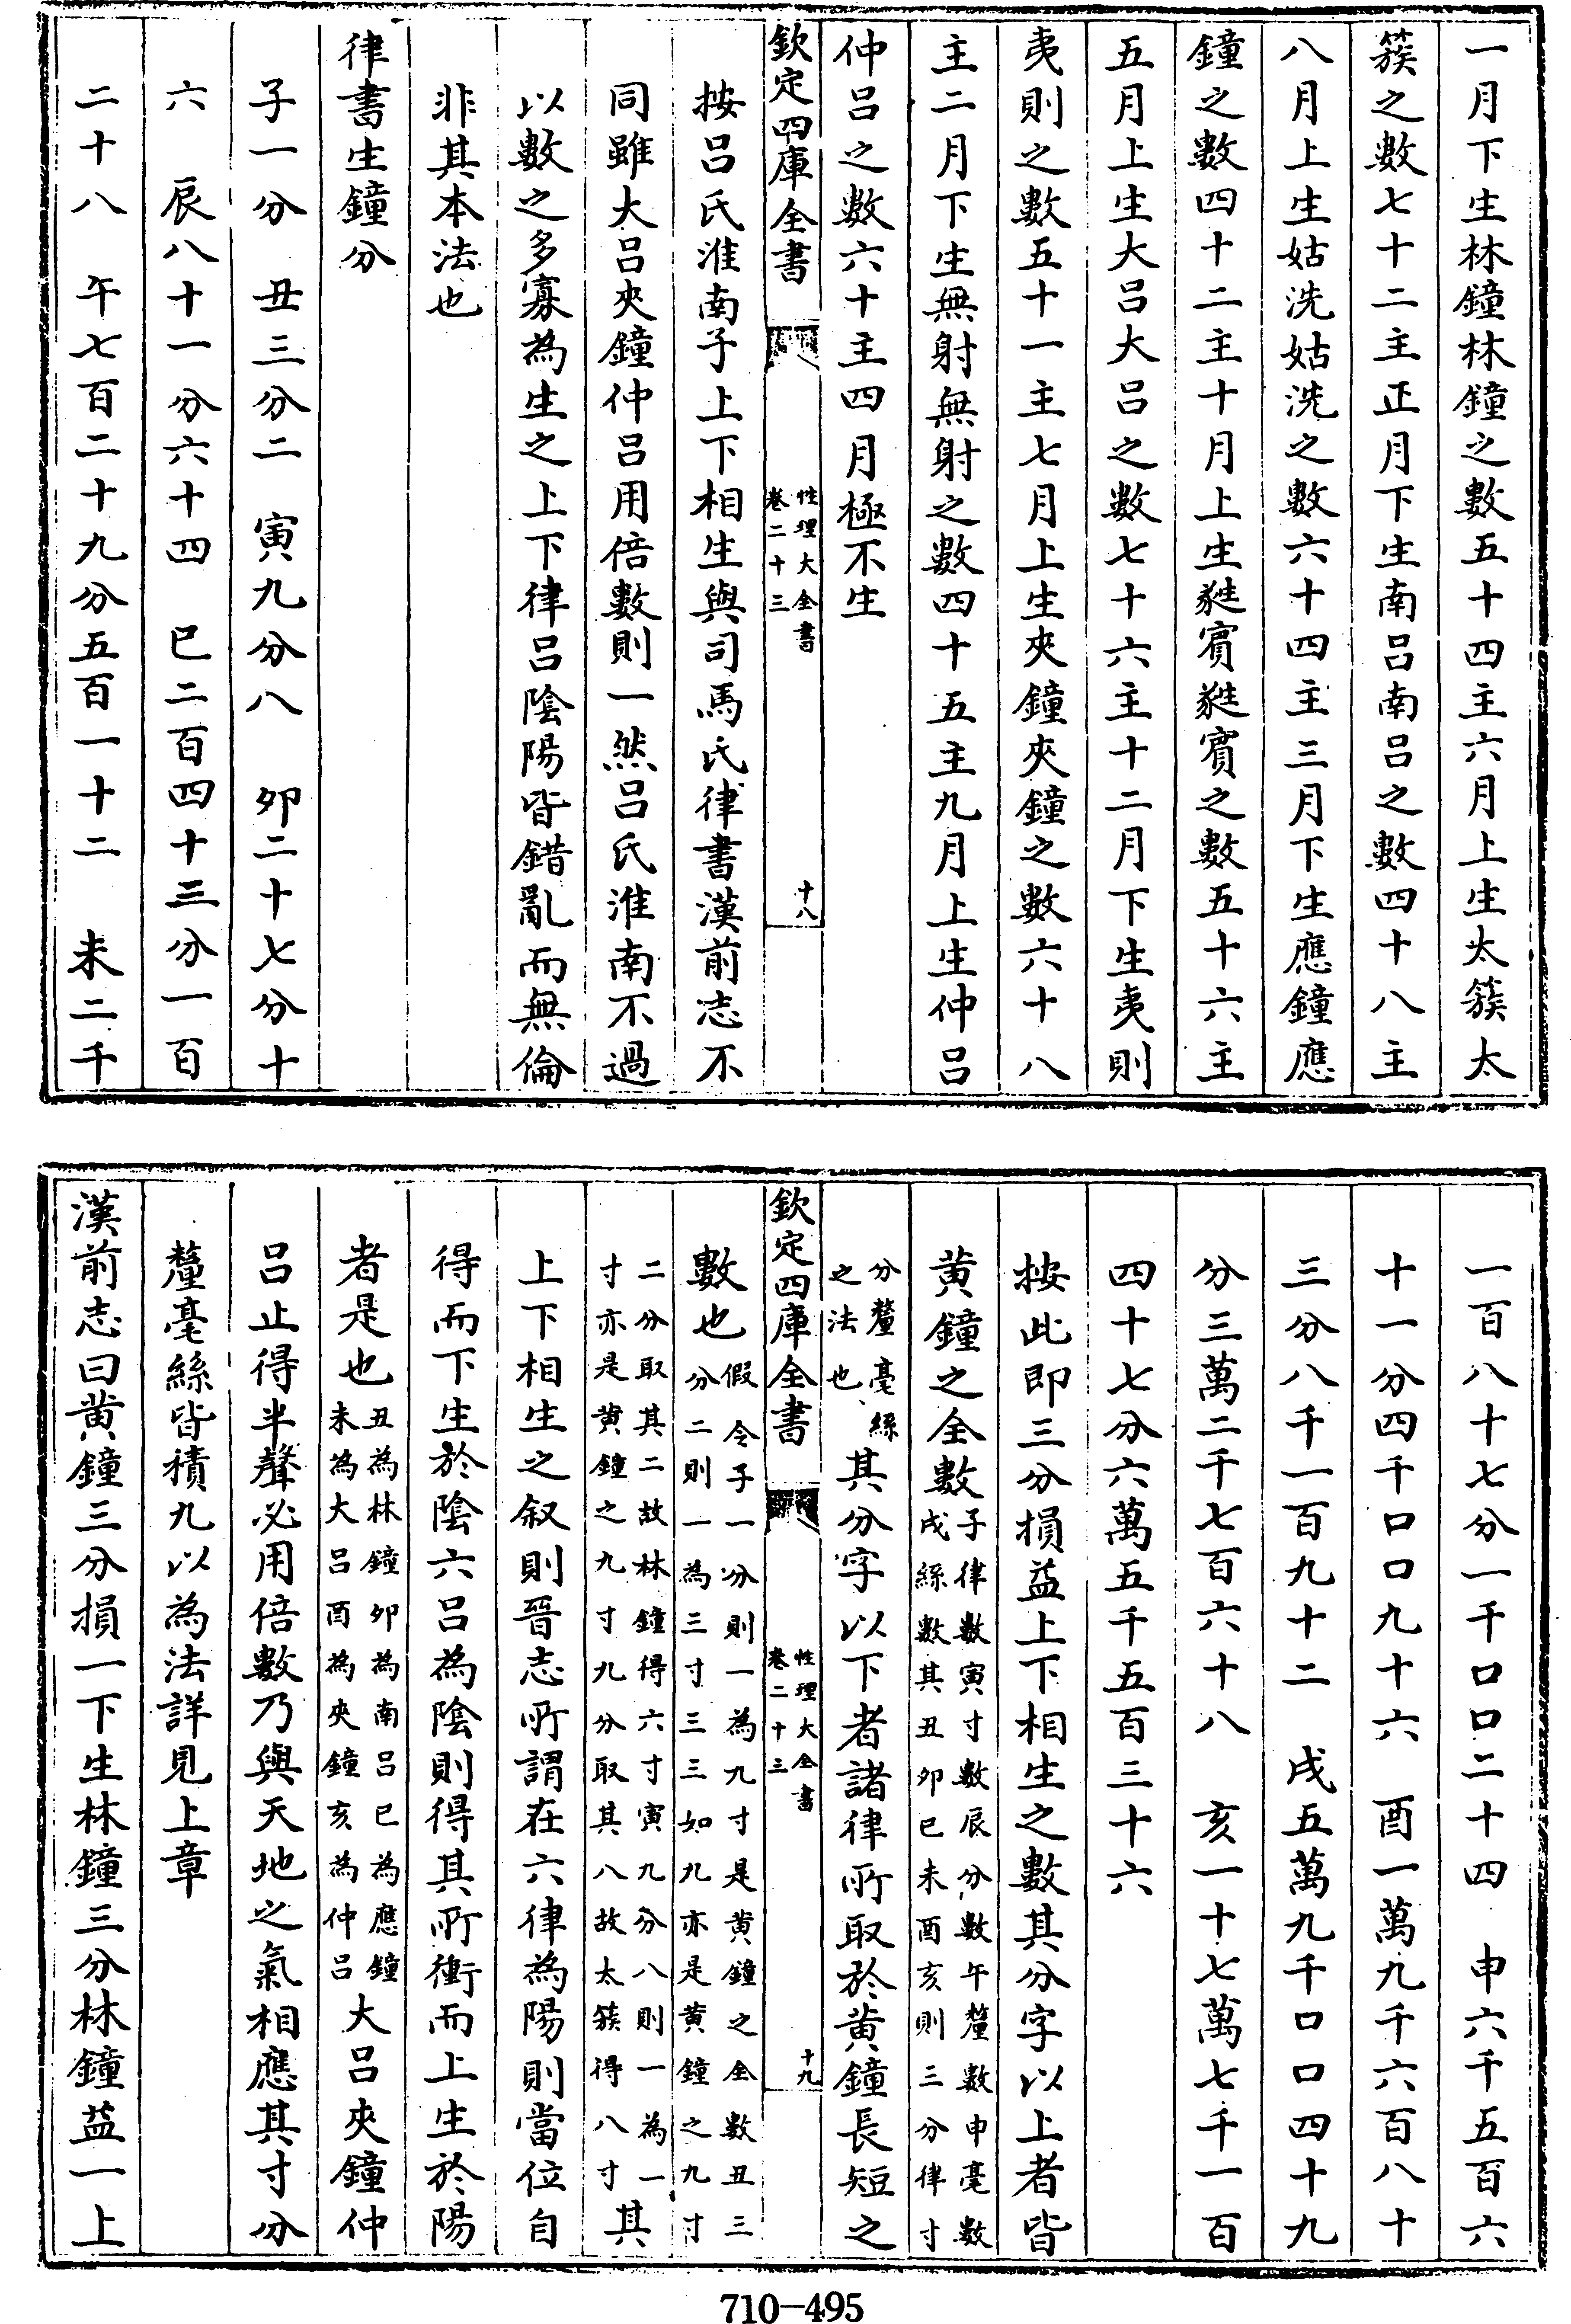 一月下生林鐘林鐘之數五十四主六月上生太簇太
簇之數七十二主正月下生南呂南呂之數四十八主
八月上生姑洗姑洗之數六十四主三月下生應鐘應
鐘之數四十二主十月上生蕤賓蕤賓之數五十六主
五月上生大呂大呂之數七十六主十二月下生夷則
夷則之數五十一主七月上生夾鐘夾鐘之數六十八
主二月下生無射無射之數四十五主九月上生仲呂
仲呂之數六十主四月極不生
欽定四庫全書
性理大全書
卷二十三
十八
按呂氏淮南子上下相生與司馬氏律書漢前志不
同雖大呂夾鐘仲呂用倍數則一然呂氏淮南不過
以數之多寡為生之上下律呂陰陽皆錯亂而無倫
非其本法也
律書生鐘分
子一分 丑三分二 寅九分八 卯二十七分十
六 辰八十一分六十四 巳二百四十三分一百
二十八 午七百二十九分五百一十二 未二千
一百八十七分一千口二十四 申六千五百六
十一分四千口口九十六 酉一萬九千六百八十
三分八千一百九十二 戌五萬九千口口四十九
分三萬二千七百六十八 亥一十七萬七千一百
四十七分六萬五千五百三十六
按此即三分損益上下相生之數其分字以上者皆
黄鐘之全數子律數寅寸數辰分數午釐數申毫數
戌絲數其丑卯巳未酉亥則三分律寸
分釐毫絲
之法也其分字以下者諸律所取於黄鐘長短之
欽定四庫全書
性理大全書
卷二十三
十九
數也假令子一分則一為九寸是黄鐘之全數丑三
分二則一為三寸三三如九亦是黄鐘之九寸
二分取其二故林鐘得六寸寅九分八則一為一
寸亦是黄鐘之九寸九分取其八故太簇得八寸其
上下相生之叙則晉志所謂在六律為陽則當位自
得而下生於陰六呂為陰則得其所衝而上生於陽
者是也丑為林鐘卯為南呂巳為應鐘
未為大呂酉為夾鐘亥為仲呂大呂夾鐘仲
呂止得半聲必用倍數乃與天地之氣相應其寸分
釐毫絲皆積九以為法詳見上章
漢前志曰黄鐘三分損一下生林鐘三分林鐘益一上
710-495